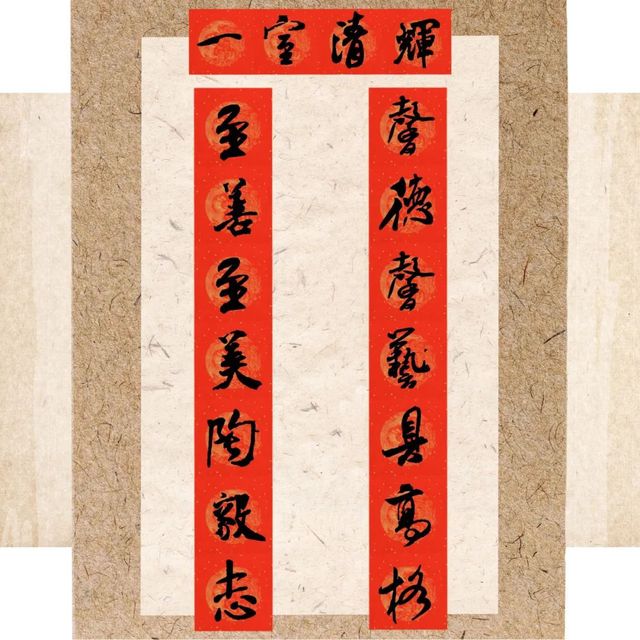 一室清輝
至善至美陶毅志
馨德馨藝具高格